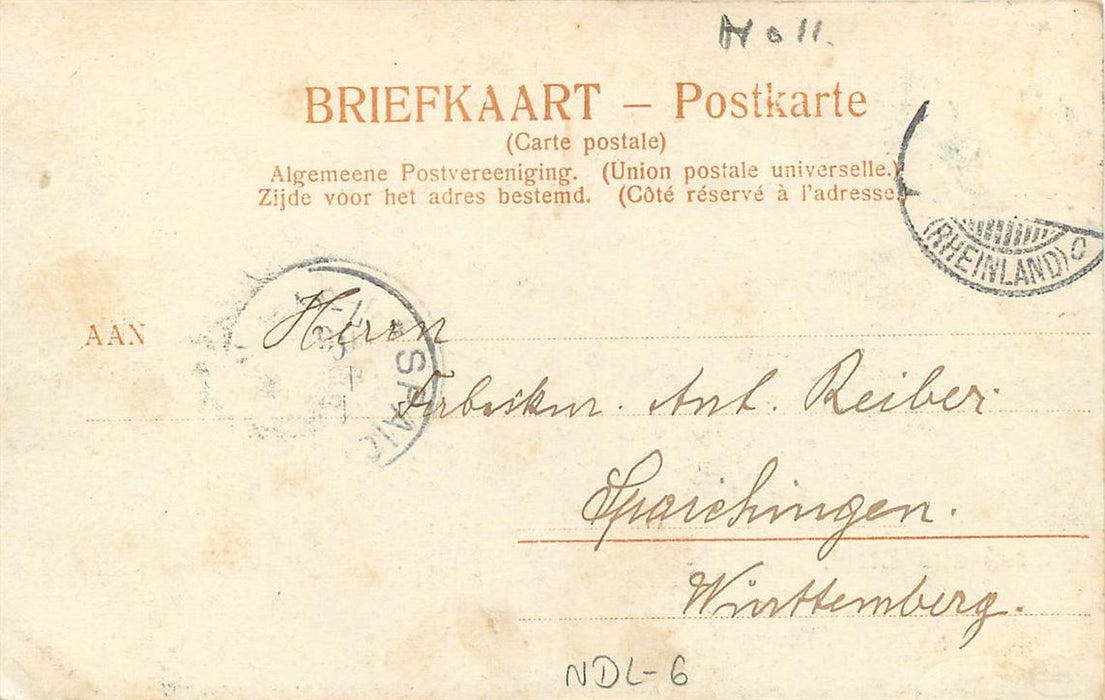 Holl.
BRIEFKAART – Postkarte
(Carte postale)
Algemeene Postvereeniging. (Union postale universelle.)
Zijde voor het adres bestemd. (Côté réservé à l'adresse.)
(RHEINLAND)
AAN Herrn
SPAIC
Ant. Reiber.
Spaichingen.
Württemberg.
NDL-6